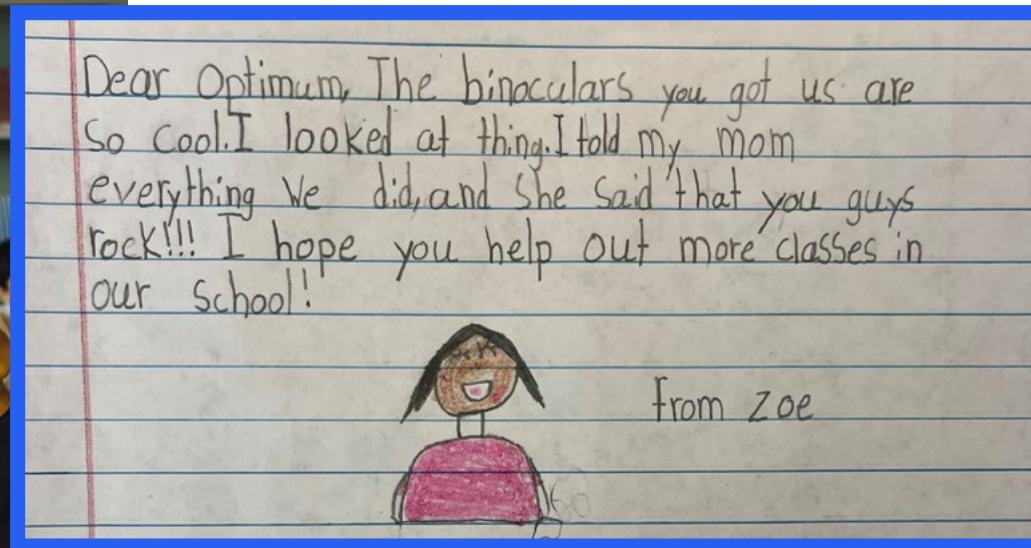 Dear Optimum, The binoculars you got us are
So cool. I looked at thing. I told my mom
everything We did, and She Said that you guys
rock!!! I hope you help out more classes in
our School!
from Zoe